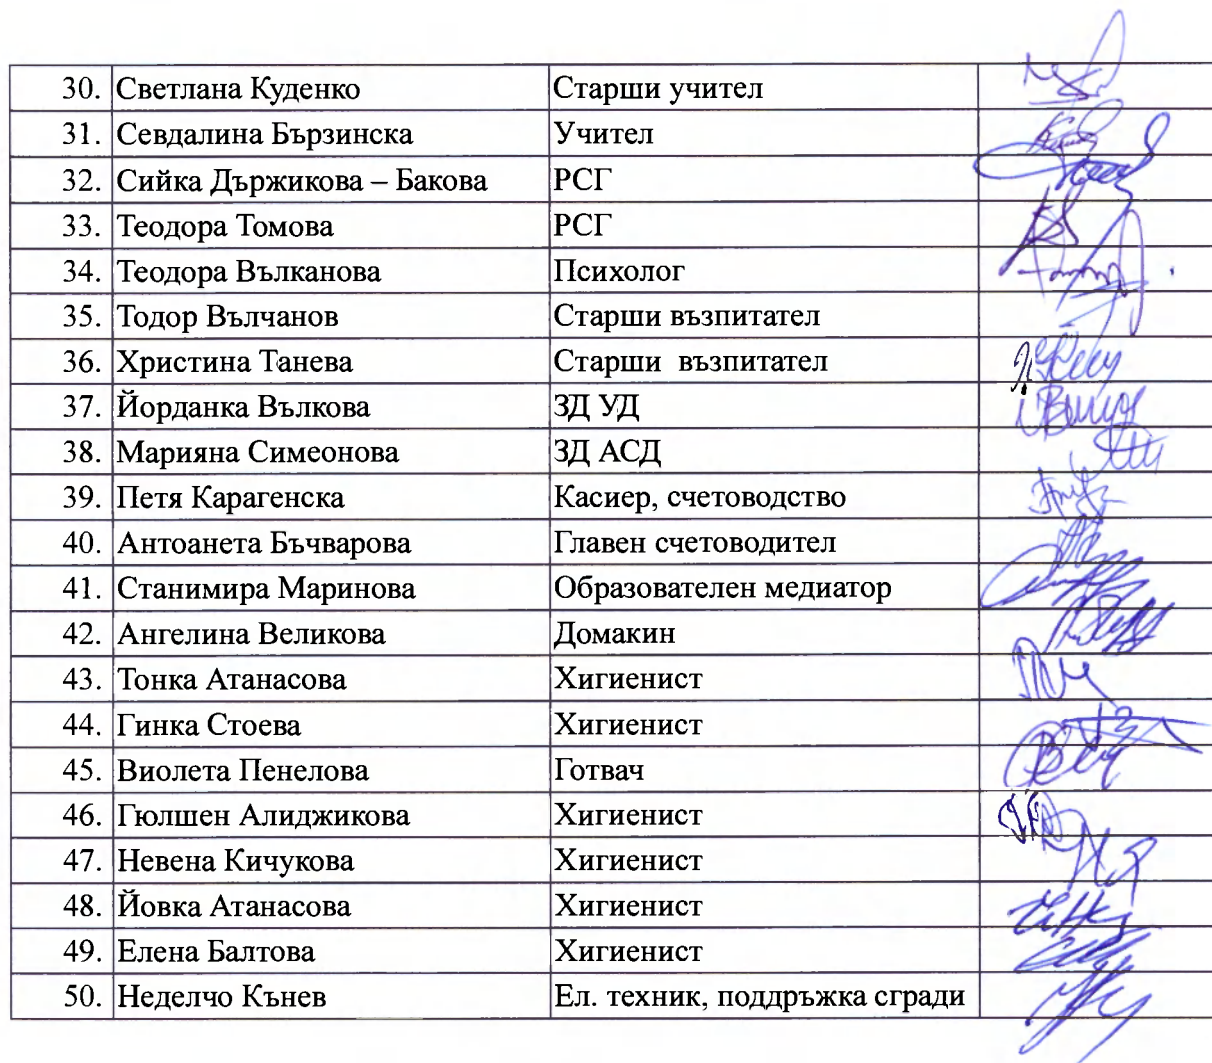 30. Светлана Куденко Старши учител
31. Севдалина Бързинска Учител
32. Сийка Държикова – Бакова РСГ
33. Теодора Томова РСГ
34. Теодора Вълканова Психолог
35. Тодор Вълчанов Старши възпитател
36. Христина Танева Старши възпитател
37. Йорданка Вълкова ЗД УД
38. Марияна Симеонова ЗД АСД
39. Петя Карагенска Касиер, счетоводство
40. Антоанета Бъчварова Главен счетоводител
41. Станимира Маринова Образователен медиатор
42. Ангелина Великова Домакин
43. Тонка Атанасова Хигиенист
44. Гинка Стоева Хигиенист
45. Виолета Пенелова Готвач
46. Гюлшен Алиджикова Хигиенист
47. Невена Кичукова Хигиенист
48. Йовка Атанасова Хигиенист
49. Елена Балтова Хигиенист
50. Неделчо Кънев Ел. техник, поддръжка сгради